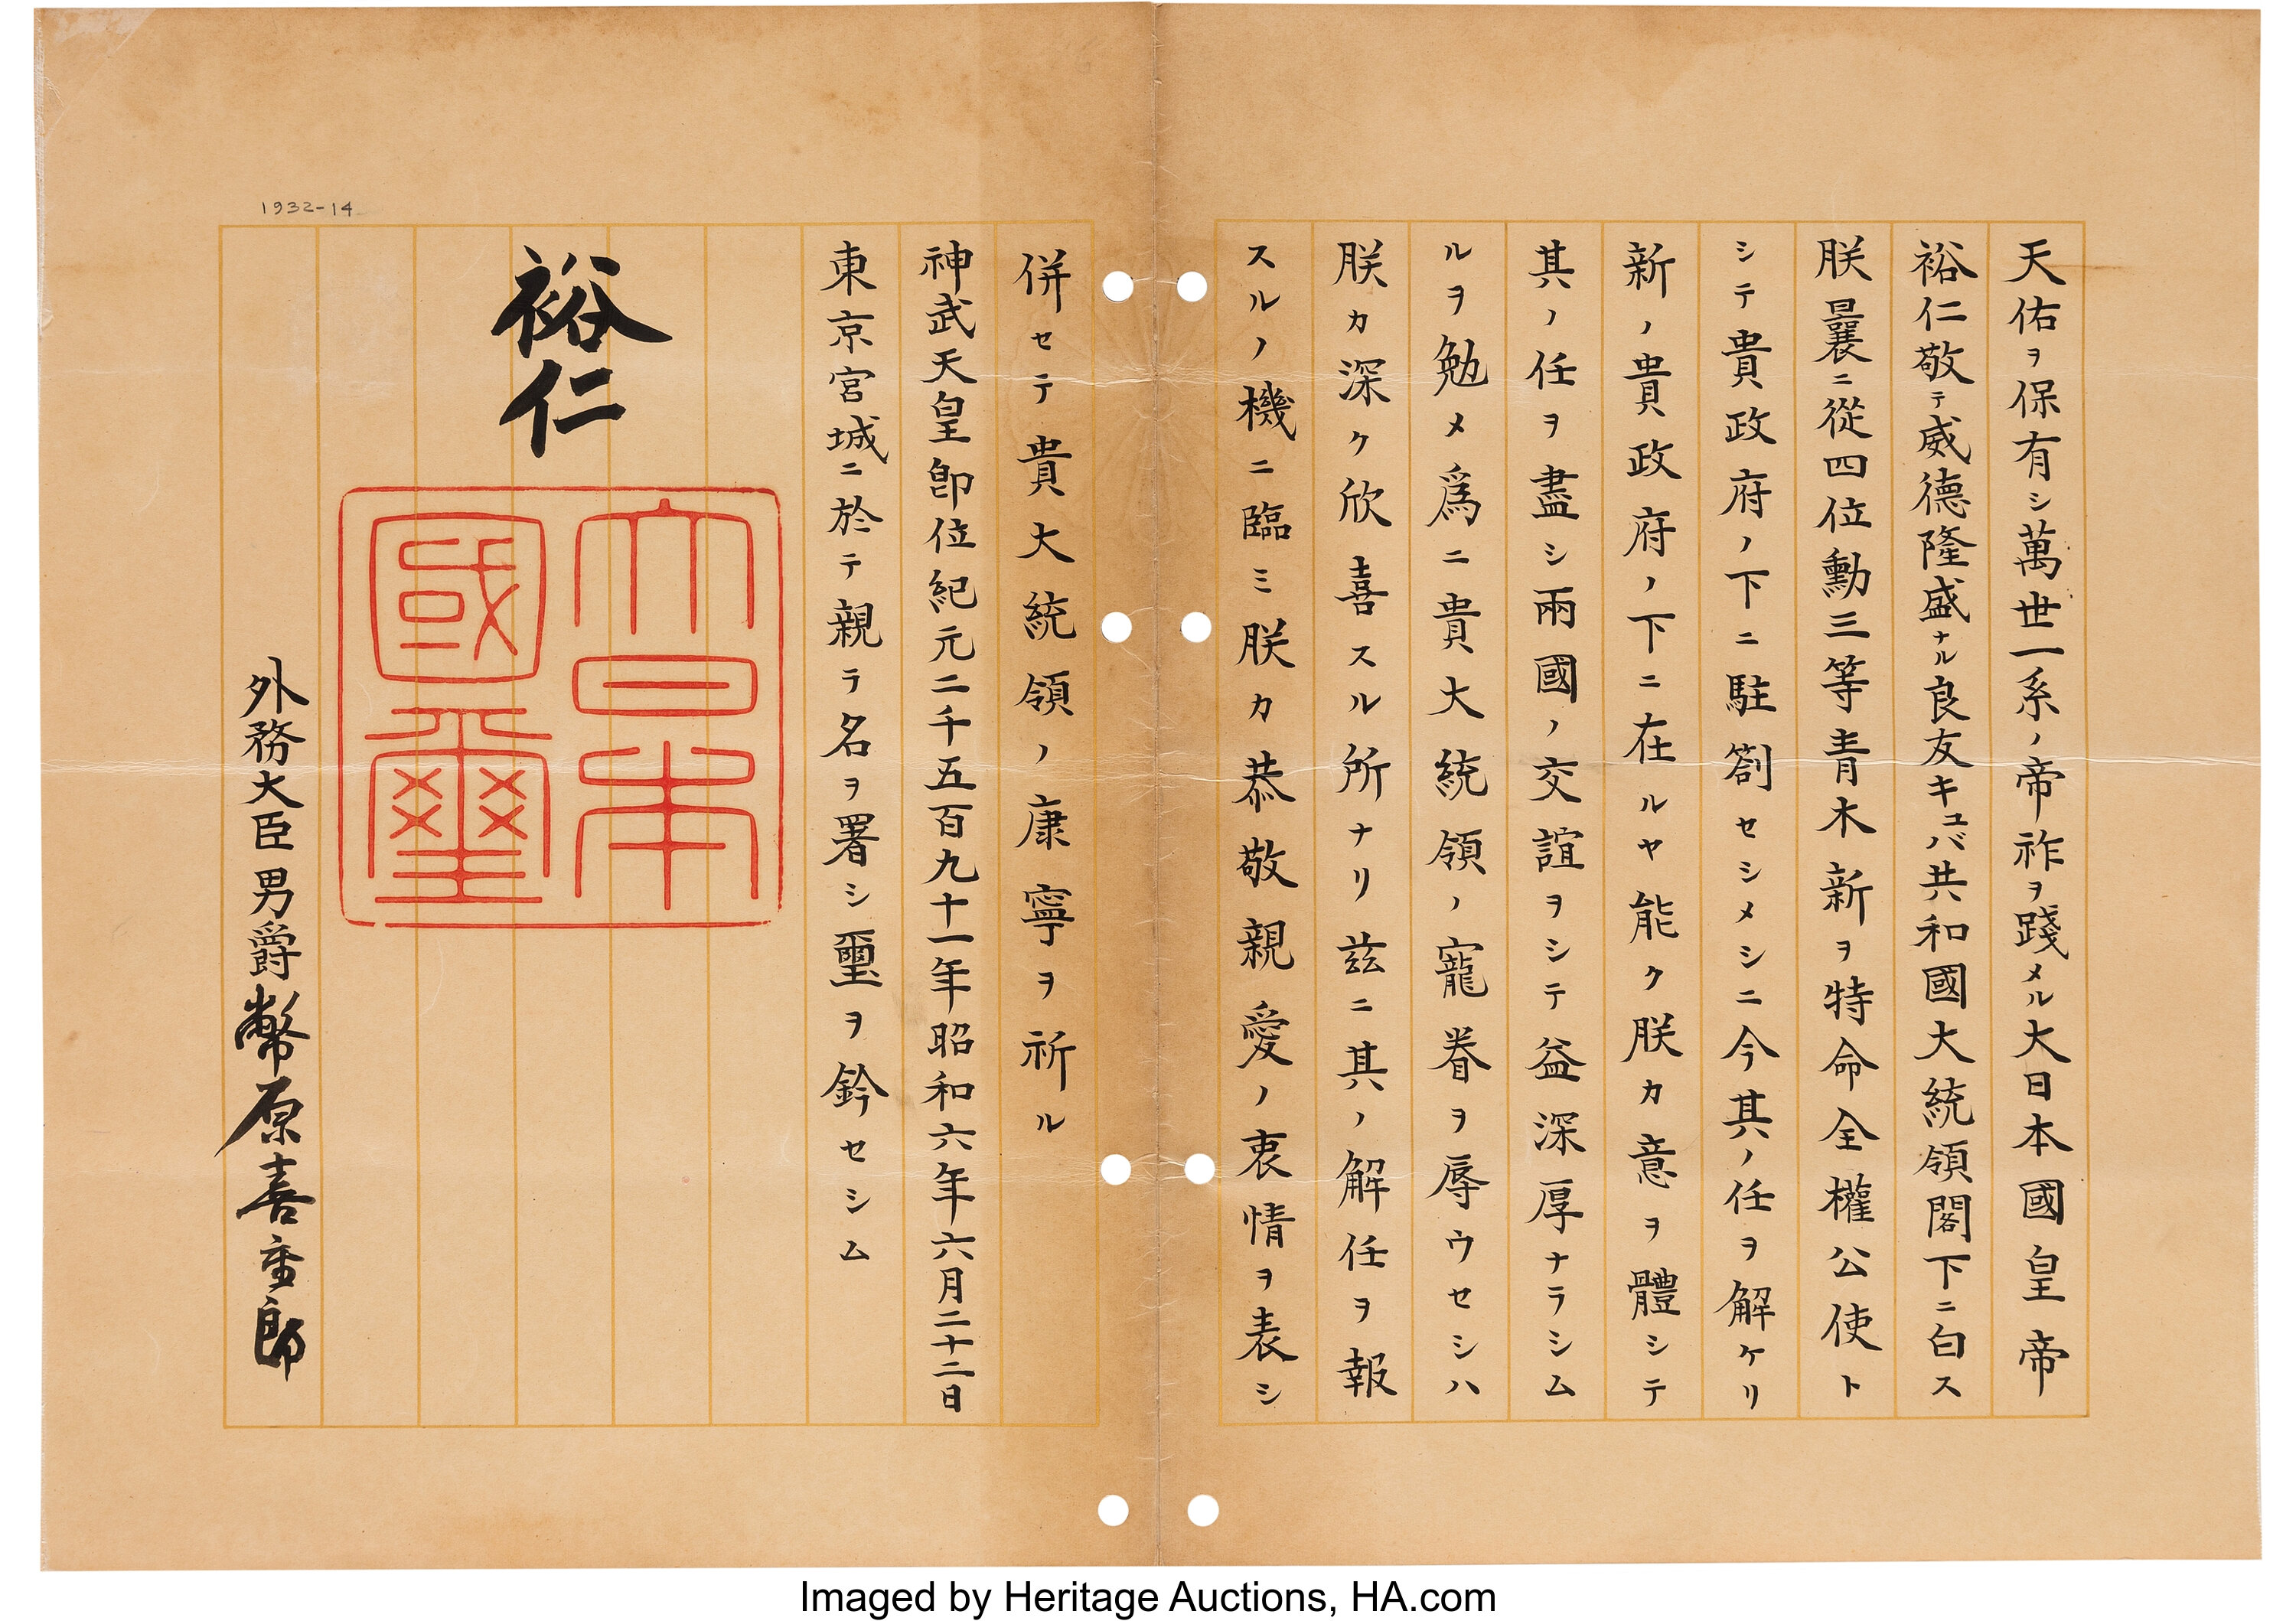 天佑ヲ保有シ萬世一系ノ帝祚ヲ踐メル大日本國皇帝
裕仁敬テ威德隆盛ナル良友キユバ共和國大統領閣下ニ白ス
朕曩ニ從四位勳三等青木新ヲ特命全權公使ト
シテ貴政府ノ下ニ駐劄セシメシニ今其ノ任ヲ解ケリ
新ノ貴政府ノ下ニ在ルヤ能ク朕カ意ヲ體シテ
其ノ任ヲ盡シ兩國ノ交誼ヲシテ益深厚ナラシム
ルヲ勉メ爲ニ貴大統領ノ寵眷ヲ辱ウセシハ
朕カ深ク欣喜スル所ナリ玆ニ其ノ解任ヲ報
スルノ機ニ臨ミ朕カ恭敬親愛ノ衷情ヲ表シ
併セテ貴大統領ノ康寧ヲ祈ル
神武天皇卽位紀元二千五百九十一年昭和六年六月二十二日
東京宮城ニ於テ親ラ名ヲ署シ璽ヲ鈐セシム
裕仁
大日本
國璽
外務大臣男爵幣原喜重郎
1932-14
Imaged by Heritage Auctions, HA.com